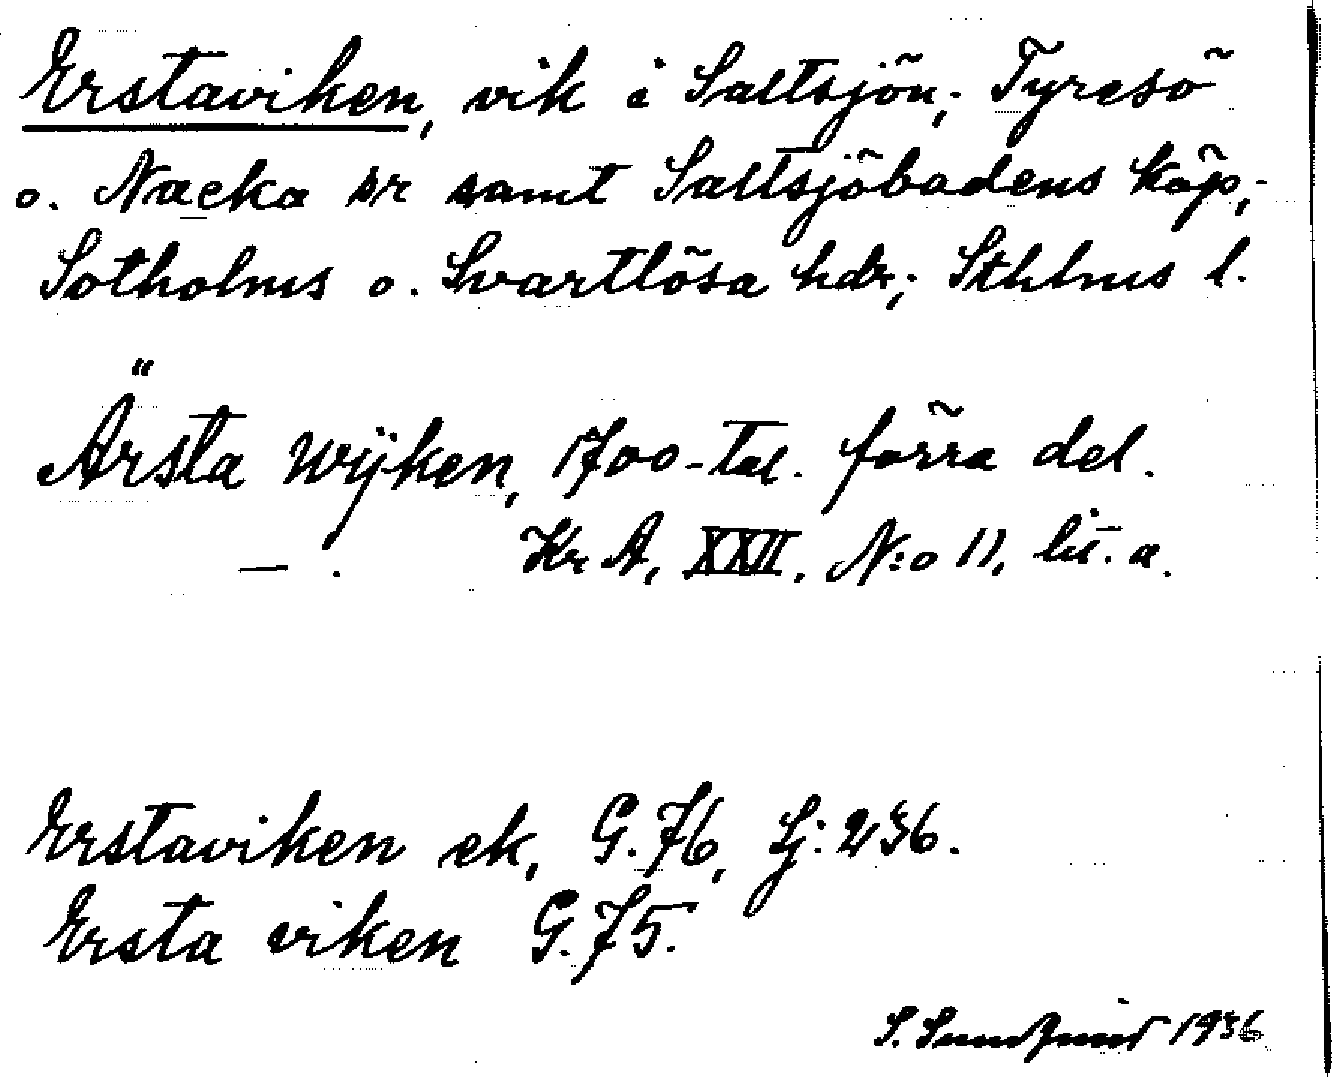 Erstaviken, vik i Saltsjön; Tyresö
o. Nacka sr samt Saltsjöbadens köp;
Sotholms o. Svartlösa hdr; Sthlms l.
Ärsta Wijken, 1700-tal. förra del.
— . Kr A, XXII, N:o 11, lit. a.
Erstaviken ek, G. 76, Sj: 236.
Ersta viken G. 75.
S. Sundquist 1936